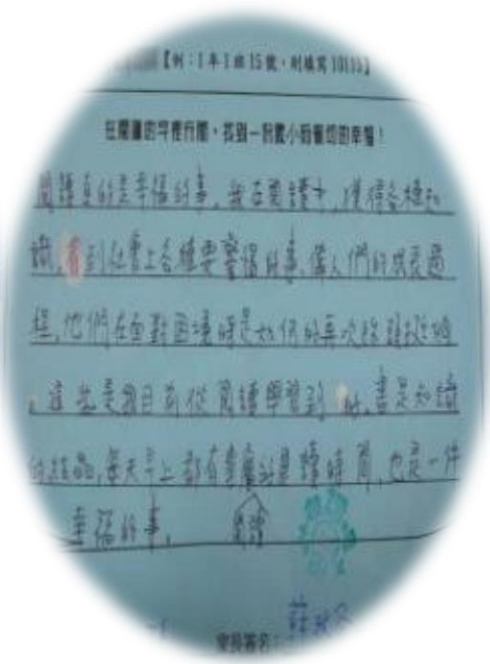 【例：1年1班15號，則填寫10115】
在閱讀的字裡行間，找到一份微小而確切的幸福！
閱讀真的是幸福的事，我在閱讀中，獲得各種知
識，看到社會上各種要警惕的事、偉人們的成長過
程，他們在面對困境時是如何的再次
，這些是我目前從閱讀學習到的，書是知識
的結晶，每天早上都有晨讀時間，也是一件
幸福的事。
家長簽名：